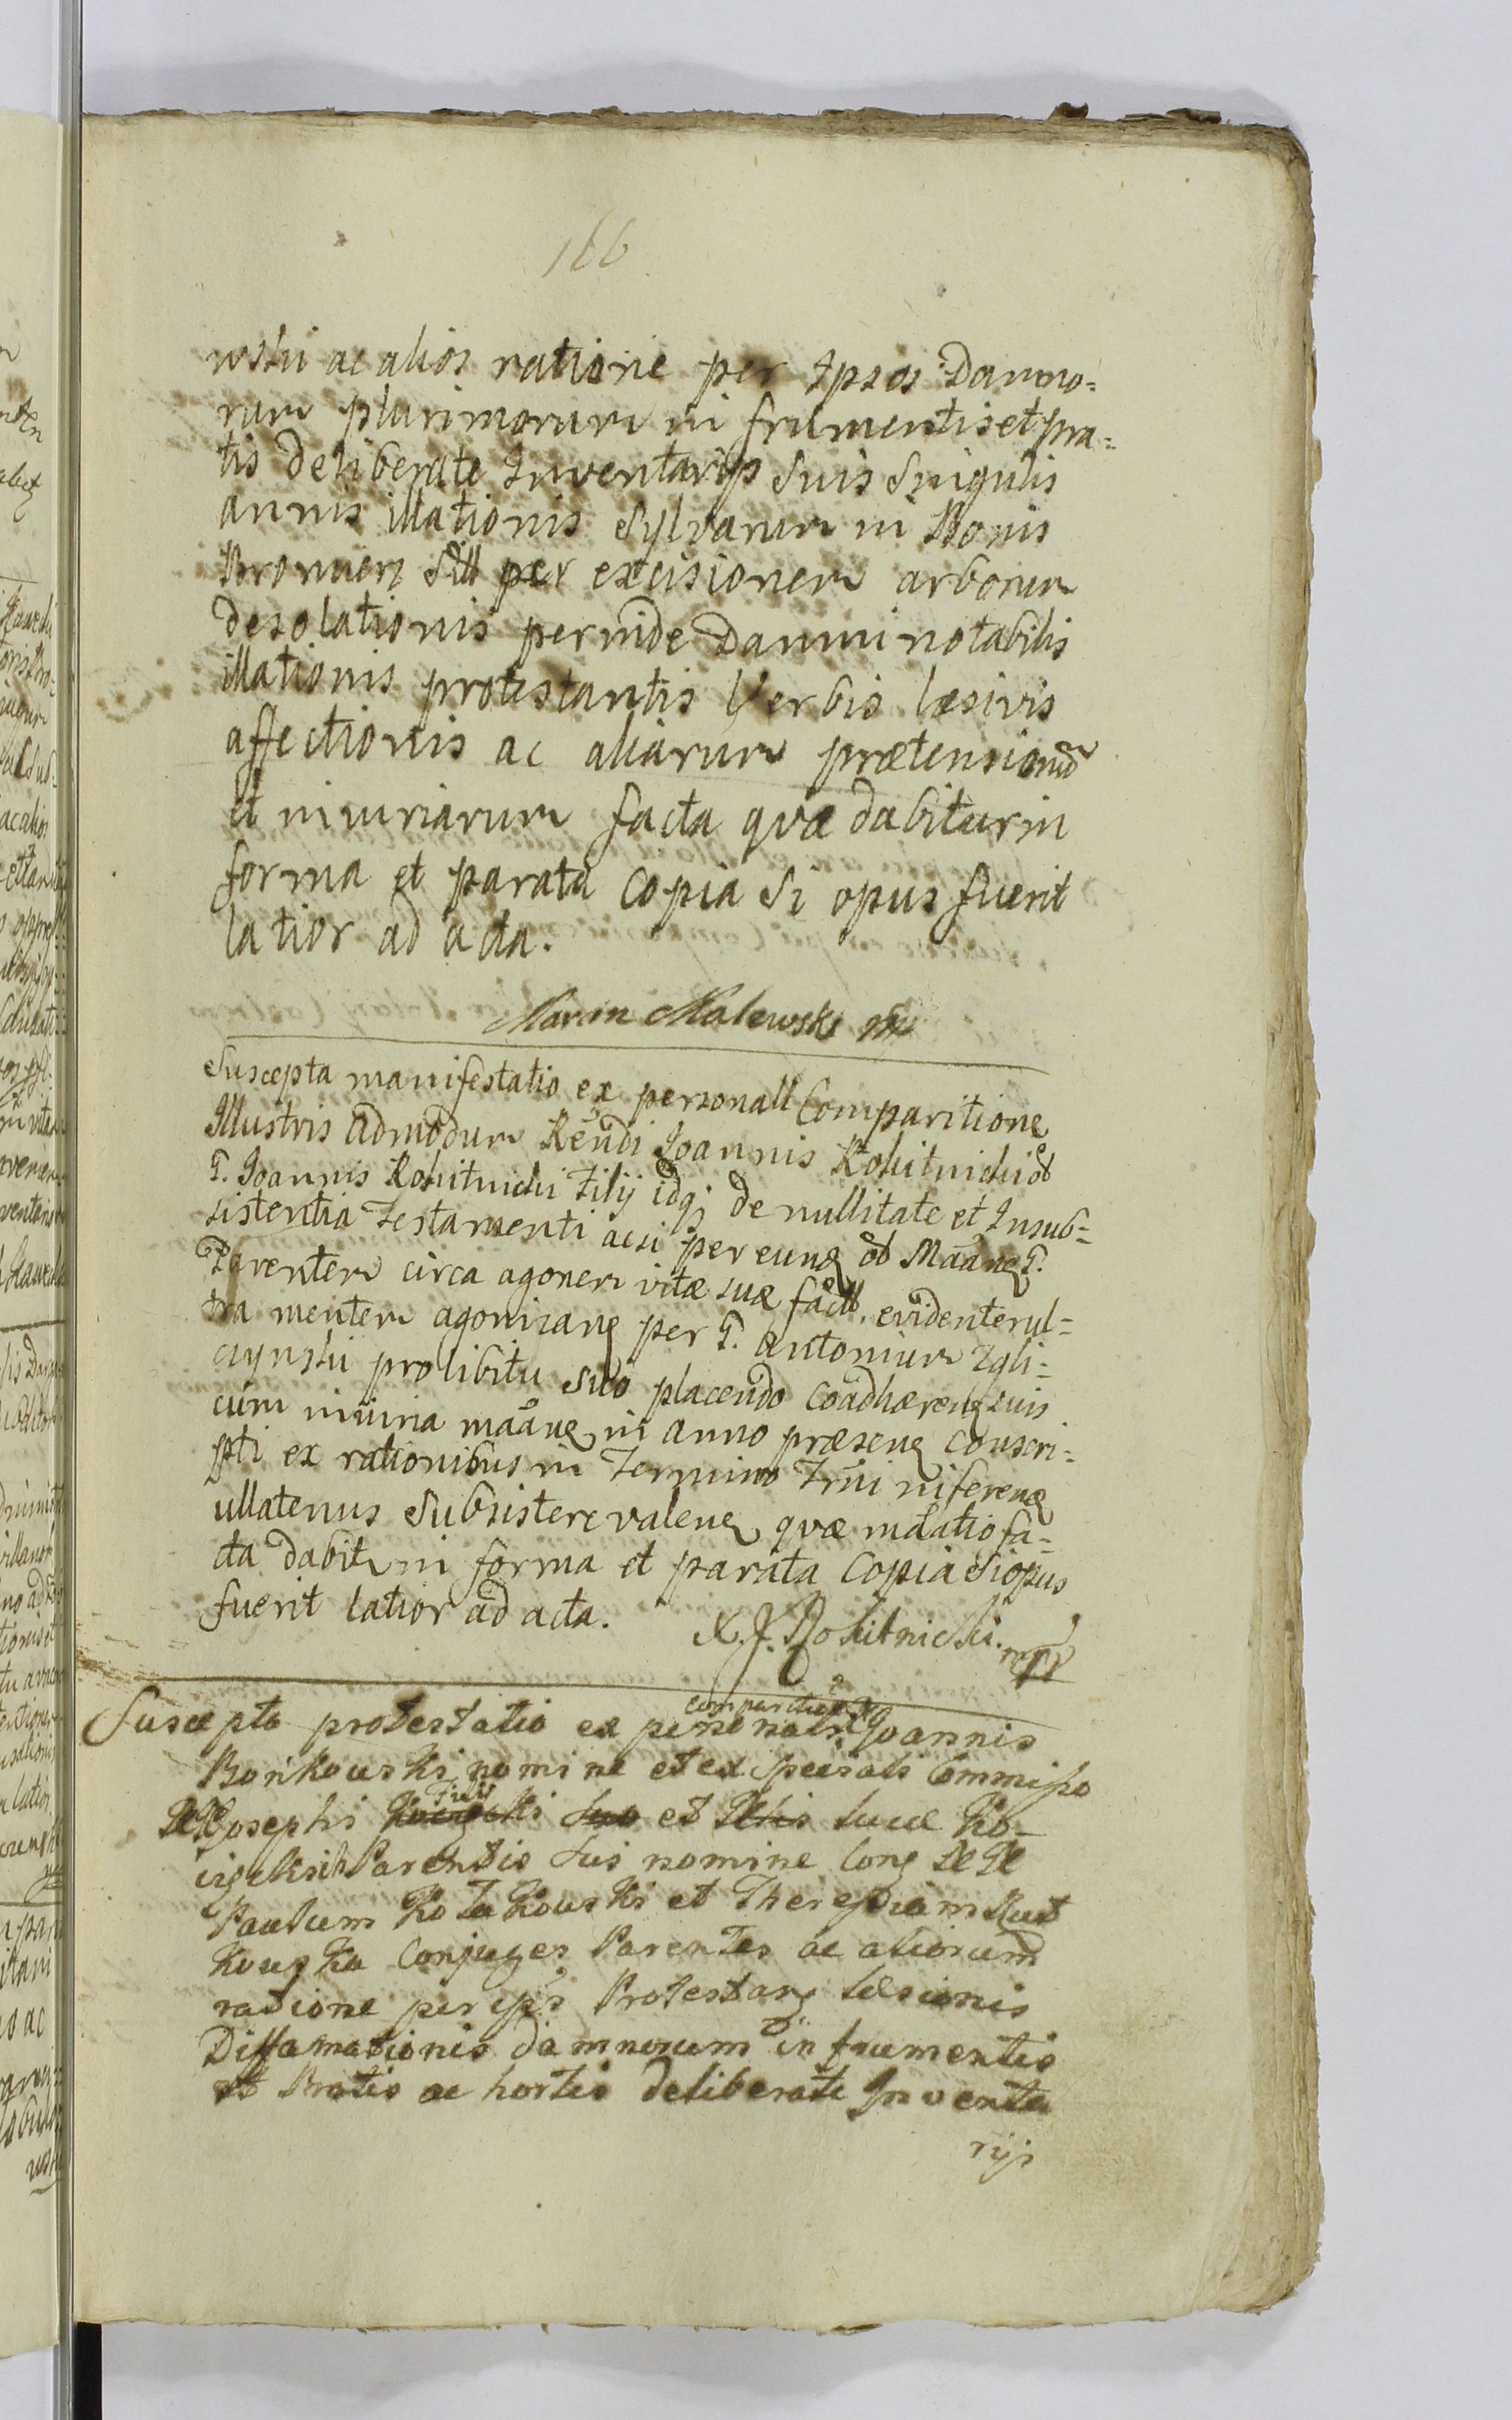 166
wski ac alios ratione per Ipsos Damno=
rum plurimorum in frumentis et pra=
tis deliberate Inventarijs suis singulis
annis illationis Sylvarum in Bonis
Bromierz sitt per excisionem arborum
desolationis perinde Damni notabilis
illationis protestantis Verbis læsivis
affectionis ac aliarum prætensionũ
et iniuriarum facta quæ dabitur in
forma et parata Copia Si opus fuerit
latior ad acta.
Marcin Malewski mp
Suscepta manifestatio ex personali Comparitione
Illustris admodum Rēndi Joannis Rokitnicki ol
G. Joannis Rokitnicki Filij idq; de nullitate et Insub=
sistentia Testamenti acsi per eunq ol Maāne G.
Parentem circa agonem vitæ suæ facti, evidenter ul=
tra mentem agonizanq per G. Antonium Zgli=
czynski prolibitu suo placendo coadhærenq suis
cum iniuria maāne in anno præsenq conscri=
pti ex rationibus in Termino Trīni inferenq
ullatenus Subsistere valenq quæ mdatio fa=
cta dabitr in forma et parata Copia Si opus
fuerit latior ad acta.
X. J. Rokitnicki mpp
Suscepta protestatio ex personali comparitione Joannis
Bonkowski nomine et ex speciali Commisso
Josephi Filij et Lucæ Ko-
Parentis sui nomine Conq
Paulum et Theresiam Rut
kowska Conjuges Parentes ac aliorum
ratione per ips Protestanq læsionis
Diffamationis damnorum in frumentis
et Pratis ac hortis deliberate Inventa
rijs